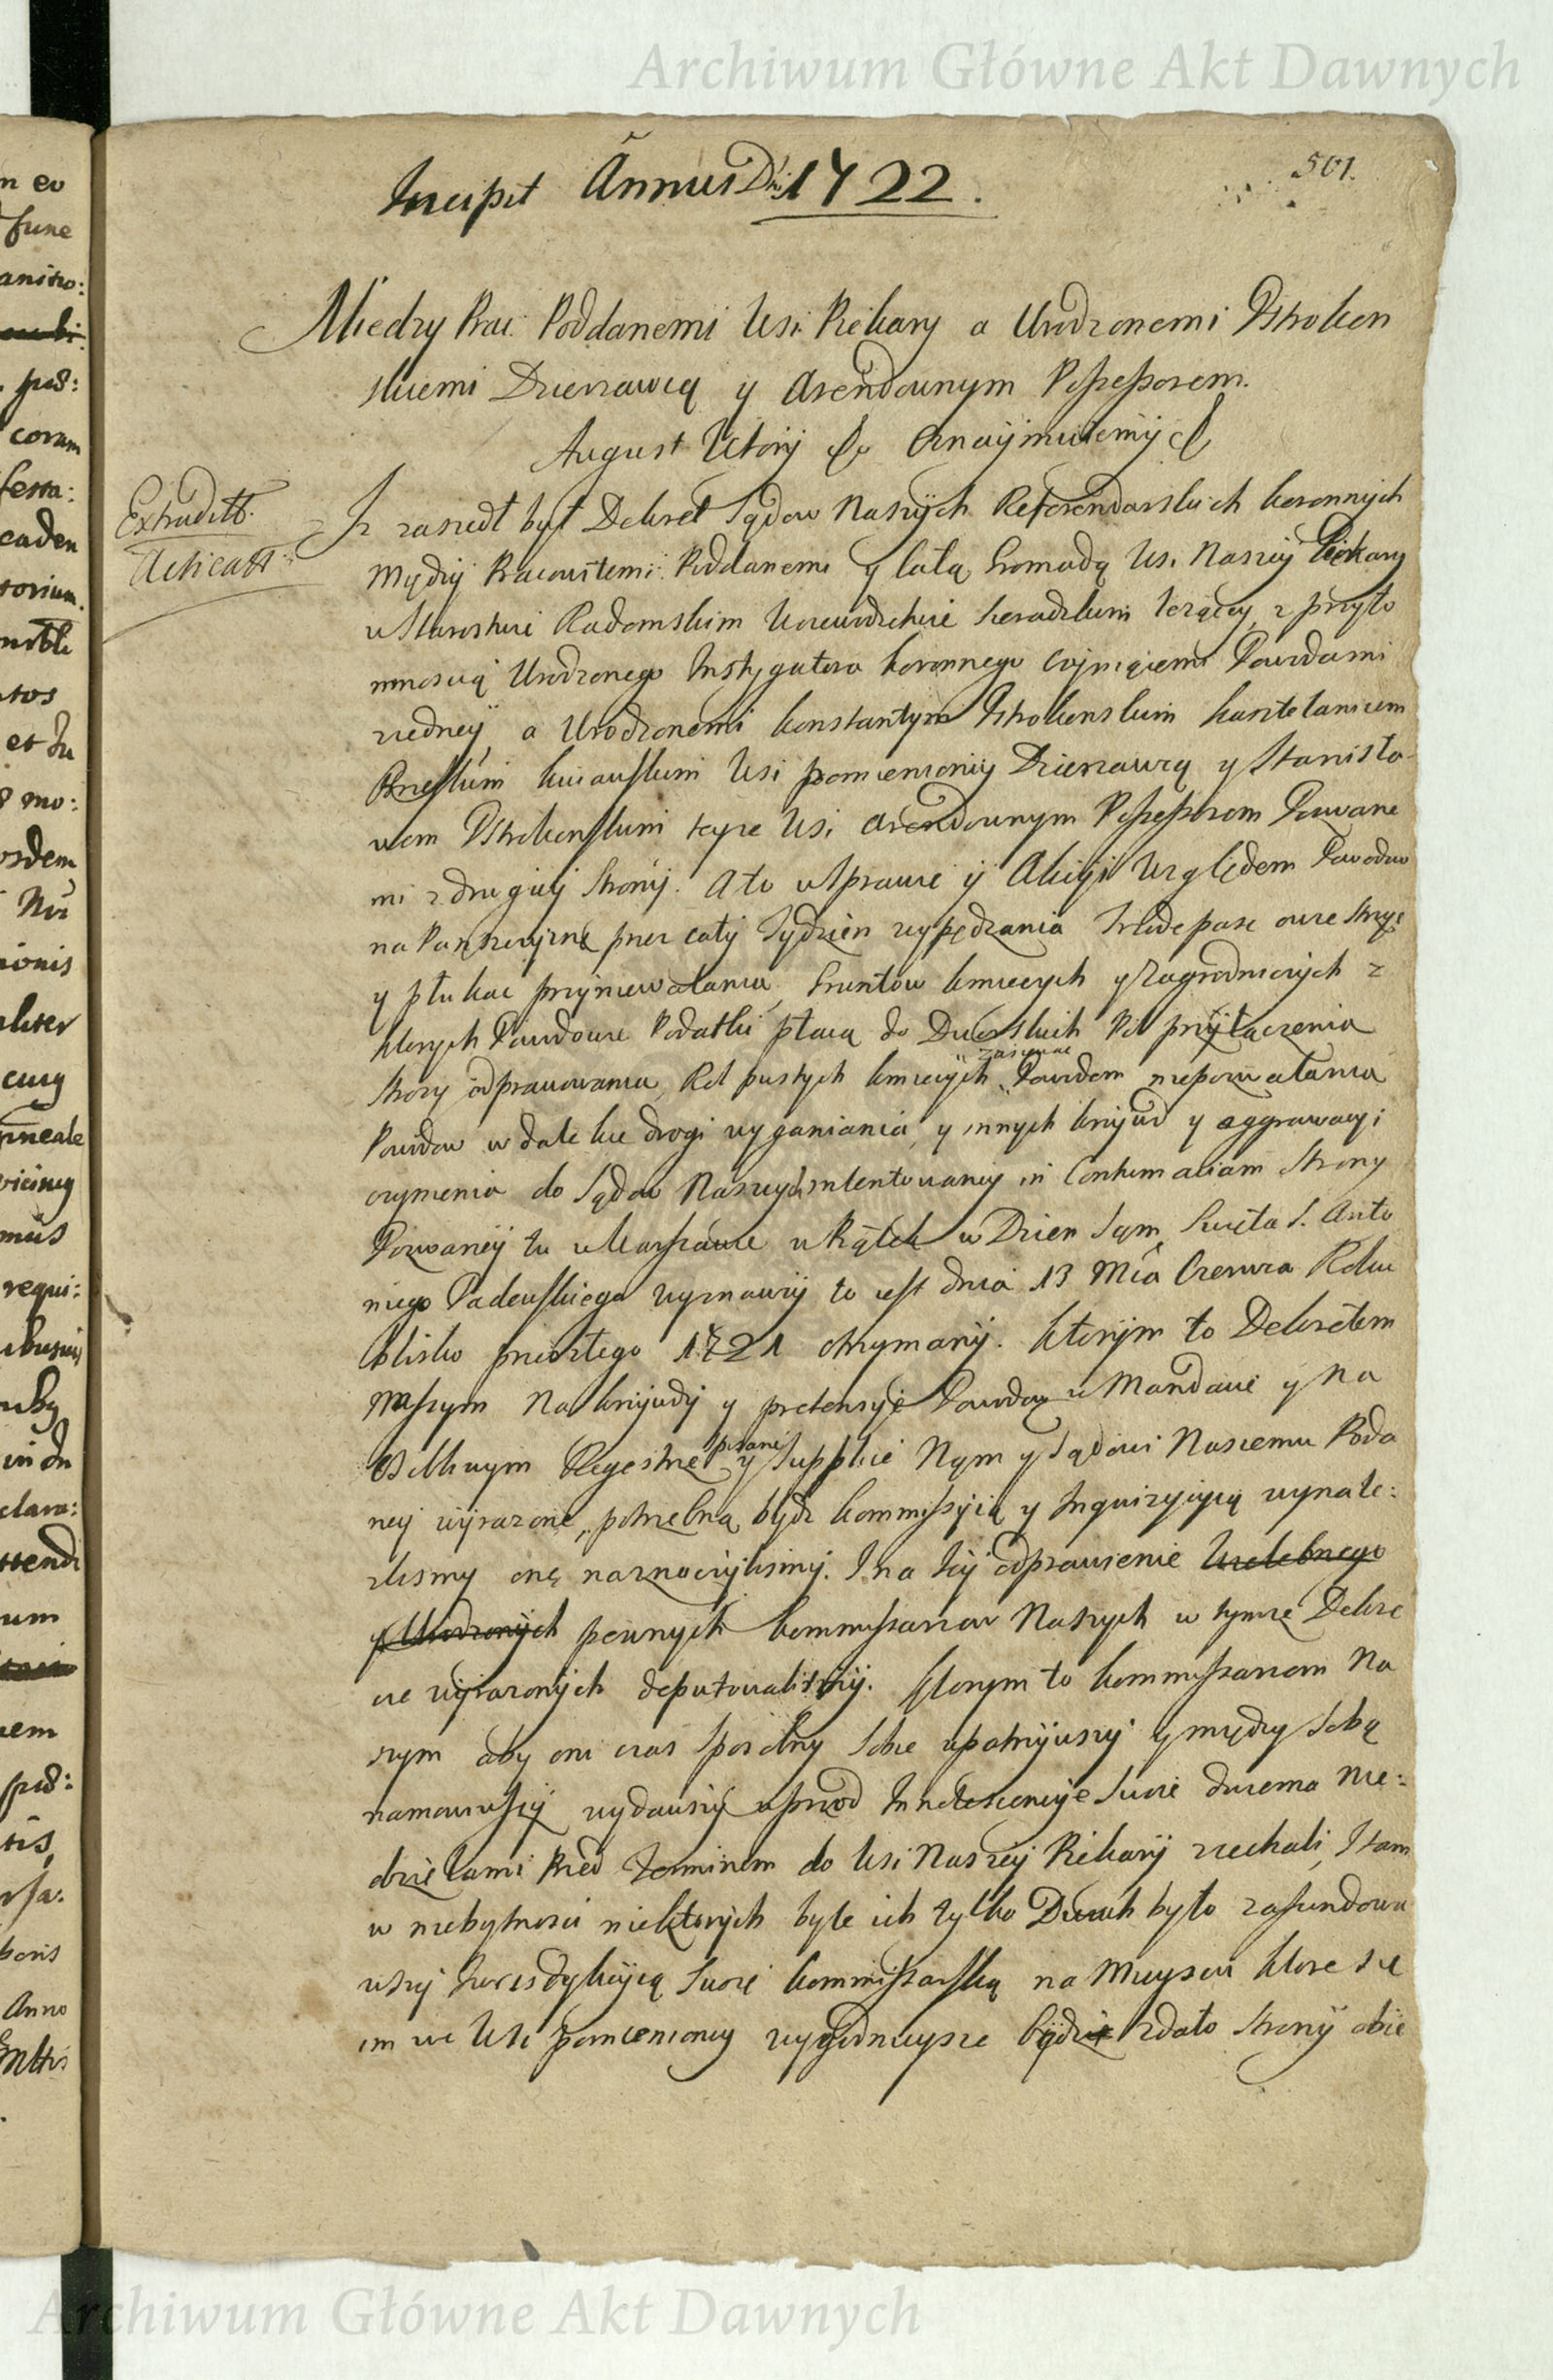 Archiwum Główne Akt Dawnych
501.
Incipit Annus Dni 1722.
Miedzy Prac: Poddanemi Wsi Piekary a Urodzonemi Pstrokon
skiemi Dzierzawcą y Arendownym Possessorem.
August Wtory &c Oznaymuiemy &c
Extraditt.
Acticatt:
Iz zaszedł był Dekret Sądow Naszych Referendarskich koronnych
między Pracowitemi Poddanemi y całą Gromadą Wsi Naszey Piekary
w Starostwie Radomskim Woiewodztwie Sieradzkim lezącey, z przyto
mnoscią Urodzonego Instygatora koronnego czyniącemi Powodami
z iedney a Urodzonemi konstantym Pstrokonskim kasztelanicem
Brzeskim kuiawskim Wsi pomienioney Dzierzawcą y Stanisła
wem Pstrokonskim teyze Wsi Arendownym Possessorem Pozwane
mi z drugiey strony. A to w Sprawie y Akcyi Względem Powodow
na Panszczyznę przez cały Tydzien wypędzania owce strzyc
y płukac przyniewalania Gruntow kmiecych y Zagrodniczych z
ktorych Powodowie Podatki płacą do Dworskich Pol przyłączenia
Strozy odprawowania, Rol pustych kmiecych zasiewac Powodom niepozwalania
Powodow w dalekie drogi wyganiania, y innych krzywd y aggrawacyi
czynienia do Sądow Naszych intentowaney in Contumaciam Strony
Pozwaney tu w Warszawie w Piątek w Dzien Sam Swięta S. Anto
niego Padewskiego wyznawcy to iest dnia 13 Mca Czerwca Roku
blisko przeszłego 1721 otrzymany. ktorym to Dekretem
Naszym Na krzywdy y pretensye Powodow w Mandacie y Na
osobnym Regestrze spisane y Supplice Nam y Sądowi Naszemu Poda
ney wyrazone, potrzebną bydz kommissyią y Inquizycyią wynale:
zlismy onę naznaczylismy. I na tey odprawienie Wielebnego
y Urodzonych pewnych kommissarzow Naszych w tymze Dekre
cie wyrazonych deputowalismy. ktorym to kommissarzom Na
szym aby oni czas sposobny sobie upatrzywszy y między Sobą
namowiwszy wydawszy wprzod Innotescencye Swoie dwiema Nie:
dzielami Przed Terminem do Wsi Naszey Piekary ziechali, I tam
w niebytnosci niektorych byle ich tylko Dwuch było zafundowa
wszy Iurisdykcyią Swoię kommissarską na Mieyscu ktore się
im we Wsi pomienioney wygodnieysze bydz zdało Strony obie
Archiwum Główne Akt Dawnych